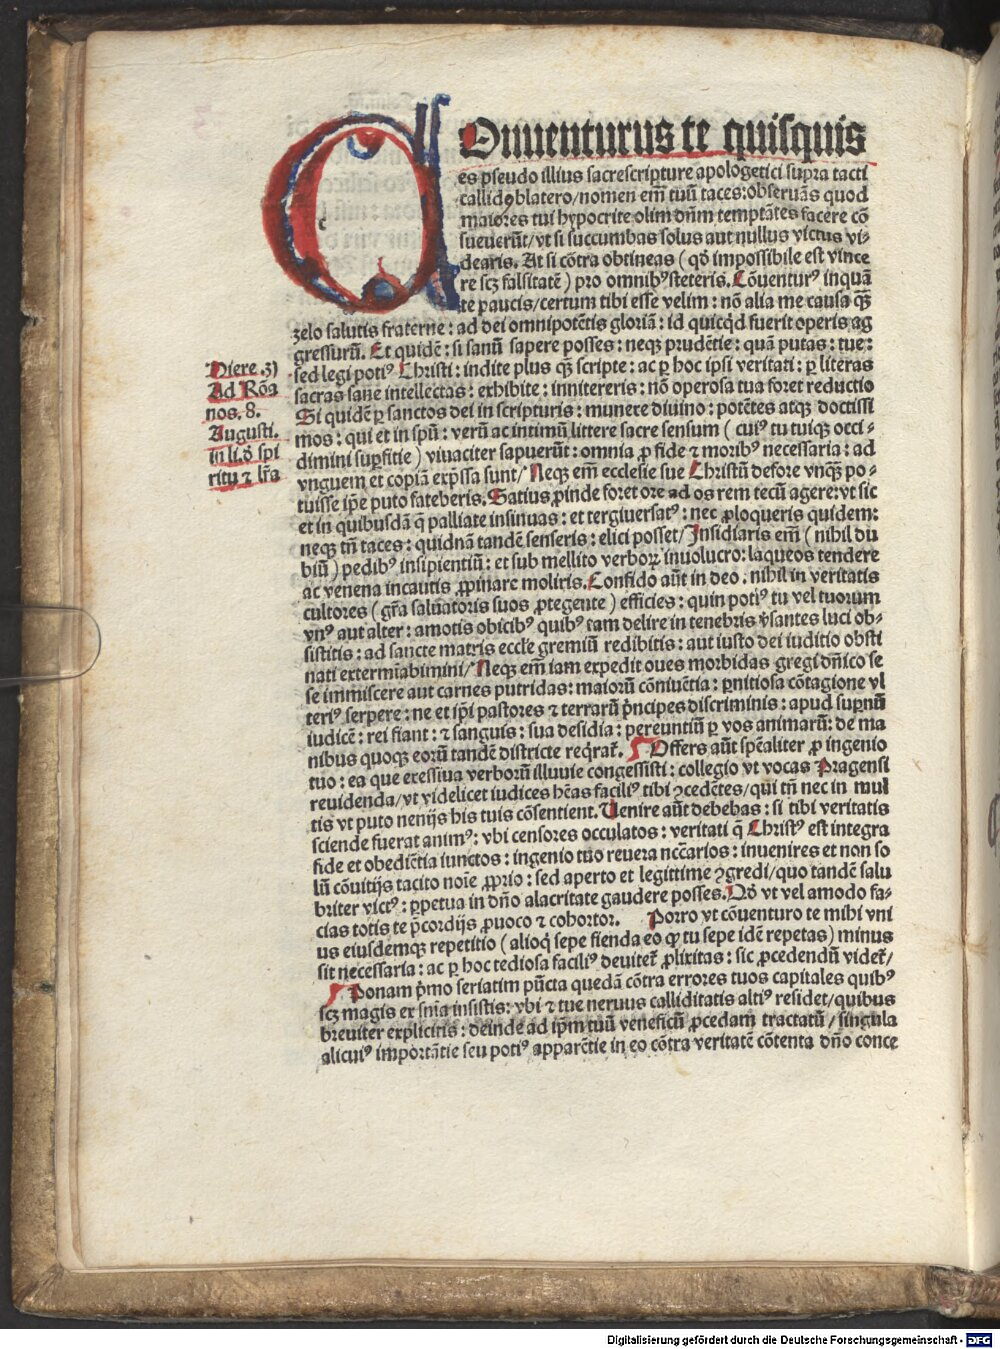 COnuenturus te quisquis
es pseudo illius sacrescripture apologetici supra tacti
callidꝰ blatero/nomen em̄ tuū taces:obseruās quod
maiores tui hypocrite olim dn̄m temptātes facere cō
sueuerūt/vt si succumbas solus aut nullus victus vi⸗
dearis. At si cōtra obtineas (qđ impossibile est vince
re scꝫ falsitatē) pro omnibꝰ steteris. Cōuenturꝰ inquā
te paucis/certum tibi esse velim: nō alia me causa qꝫ̄
zelo salutis fraterne: ad dei omnipotētis gloriā: id quicqd fuerit operis ag
gressurū. Et quidē: si sanū sapere posses: neqꝫ prudētie: quā putas: tue:
sed legi potiꝰ Christi: indite plus qꝫ̄ scripte: ac ꝑ hoc ipsi veritati: ꝑ literas
sacras sane intellectas: exhibite: innitereris: nō operosa tua foret reductio
Si quidē ꝑ sanctos dei in scripturis: munere diuino: potētes atqꝫ doctissi
mos: qui et in spū: verū ac intimū littere sacre sensum (cuiꝰ tu tuiqꝫ occi⸗
dimini suꝑfitie) viuaciter sapuerūt: omnia ꝓ fide ⁊ moribꝰ necessaria: ad
vnguem et copiā exp̄ssa sunt/ Neqꝫ em̄ ecclesie sue Christū defore vnqꝫ̄ po⸗
tuisse ip̄e puto fateberis. Satius ꝓinde foret ore ad os rem tecū agere: vt sic
et in quibusdā q̄ palliate insinuas: et tergiuersatꝰ: nec ꝓloqueris quidem:
neqꝫ tn̄ taces: quidnā tandē senseris: elici posset/ Insidiaris em̄ (nihil du
biū) pedibꝰ insipientiū: et sub mellito verboꝝ inuolucro: laqueos tendere
ac venena incautis ꝓpinare moliris. Confido aūt in deo. nihil in veritatis
cultores (gr̄a saluatoris suos ꝓtegente) efficies: quin potiꝰ tu vel tuorum
vnꝰ aut alter: amotis obicibꝰ quibꝰ tam delire in tenebris v̓santes luci ob⸗
sistitis: ad sancte matris eccl̄e gremiū redibitis: aut iusto dei iuditio obsti
nati extermīabimini/ Neqꝫ em̄ iam expedit oues morbidas gregi dn̄ico se
se immiscere aut carnes putridas: maiorū cōniuētia: ꝑnitiosa cōtagione vl
teriꝰ serpere: ne et ip̄i pastores ⁊ terrarū p̓ncipes discriminis: apud suꝑnū
iudicē: rei fiant: ⁊ sanguis: sua desidia: pereuntiū ꝑ vos animarū: de ma
nibus quoqꝫ eorū tandē districte reqrat̄. Offers aūt sp̄ealiter ꝓ ingenio
tuo: ea que excessiua verborū illuuie congessisti: collegio vt vocas Pragensi
reuidenda/vt videlicet iudices hēas faciliꝰ tibi ꝯcedētes/qui tn̄ nec in mul
tis vt puto nenijs his tuis cōsentient. Uenire aūt debebas: si tibi veritatis
sciende fuerat animꝰ: vbi censores occulatos: veritati q̄ Christꝰ est integra
fide et obediētia iunctos: ingenio tuo reuera nccārios: inuenires et non so
lū cōuitijs tacito noīe ꝓprio: sed aperto et legittime ꝯgredi/quo tandē salu
briter victꝰ: ꝑpetua in dn̄o alacritate gaudere posses. Qđ vt vel amodo fa⸗
cias totis te p̄cordijs ꝓuoco ⁊ cohortor. Porro vt cōuenturo te mihi vni
us eiusdemqꝫ repetitio (alioqi sepe fienda eo ꝙ tu sepe idē repetas) minus
sit necessaria: ac ꝑ hoc tediosa faciliꝰ deuitet̄ ꝓlixitas: sic ꝓcedendū videt̄/
Ponam p̓mo seriatim pūcta quedā cōtra errores tuos capitales quibꝰ
scꝫ magis ex sn̄ia insistis: vbi ⁊ tue neruus calliditatis altiꝰ residet/quibus
breuiter explicitis: deinde ad ip̄m tuū veneficū ꝓcedam tractatū/singula
alicuiꝰ importātie seu potiꝰ apparētie in eo cōtra veritatē cōtenta dn̄o conce
Hiere. 31
Ad Roma
nos. 8.
Augusti.
in li. đ spi
ritu ⁊ lr̄a
Digitalisierung gefördert durch die Deutsche Forschungsgemeinschaft - DFG